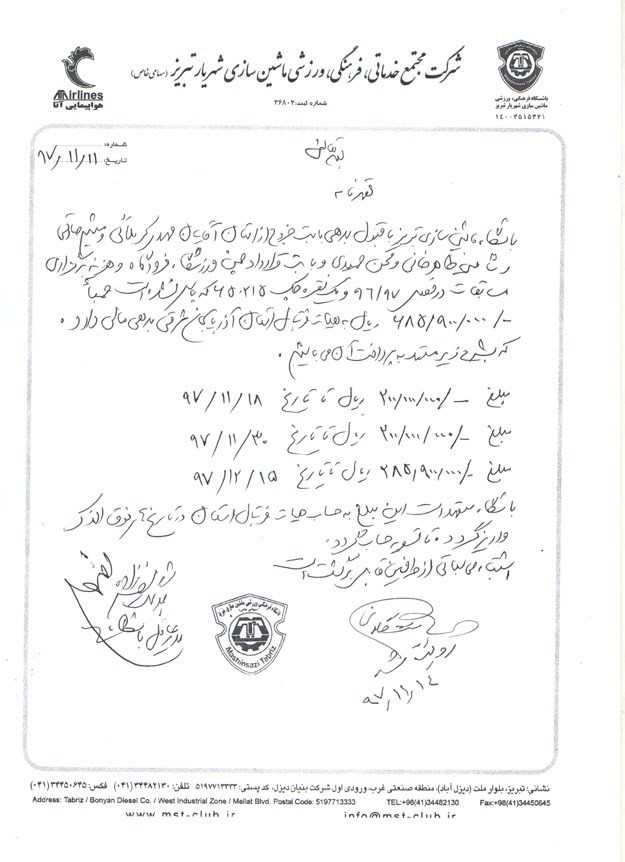 شرکت مجتمع خدماتی، فرهنگی، ورزشی ماشین سازی شهریار تبریز (سهامی خاص)
شماره ثبت: ۳۶۸۰۲
ATA Airlines
هواپیمایی آتا
باشگاه فرهنگی، ورزشی
ماشین سازی شهریار تبریز
۱۴۰۰۳۵۱۵۳۲۱
شماره:
تاریخ: ۹۷/۱۱/۱۱
بسمه تعالی
تعهدنامه
باشگاه ماشین سازی تبریز با قبول بدهی بابت خروج از استان آقایان مهدی کربلائی و میثم
و طاهرخانی و محسن مهدوی و بابت قرارداد ورزشگاه، فرودگاه و هزینه برگزاری
مسابقات در فصل ۹۶/۹۷ و یک فقره چک ۶۵۰۲۱۵ که پاس نشده است جمعاً
۶۸۵/۹۰۰/۰۰۰/- ریال به هیات فوتبال استان آذربایجان شرقی بدهی مالی دارد.
که بشرح زیر متعهد به پرداخت آن می باشیم.
مبلغ ۲۰۰/۰۰۰/۰۰۰/- ریال تا تاریخ ۹۷/۱۱/۱۸
مبلغ ۲۰۰/۰۰۰/۰۰۰/- ریال تا تاریخ ۹۷/۱۱/۳۰
مبلغ ۲۸۵/۹۰۰/۰۰۰/- ریال تا تاریخ ۹۷/۱۲/۱۵
باشگاه متعهد است این مبلغ به حساب هیات فوتبال استان در تاریخ های فوق الذکر
واریز گردد تا تسویه حساب گردد.
اشتباه محاسباتی از طرفین قابل برگشت است
مدیرعامل باشگاه
رویت شد
۹۷/۱۱/۱۴
Mashinsazi Tabriz
نشانی: تبریز، بلوار ملت (دیزل آباد)، منطقه صنعتی غرب، ورودی اول شرکت بنیان دیزل، کدپستی: ۵۱۹۷۷۱۳۳۳۳ تلفن: ۳۴۴۸۲۱۳۰ (۰۴۱) فکس: ۳۴۴۵۰۶۴۵ (۰۴۱)
Address: Tabriz / Bonyan Diesel Co. / West Industrial Zone / Mellat Blvd. Postal Code: 5197713333 TEL:+98(41)34482130 Fax:+98(41)34450645
www.mst-club.ir info@mst-club.ir